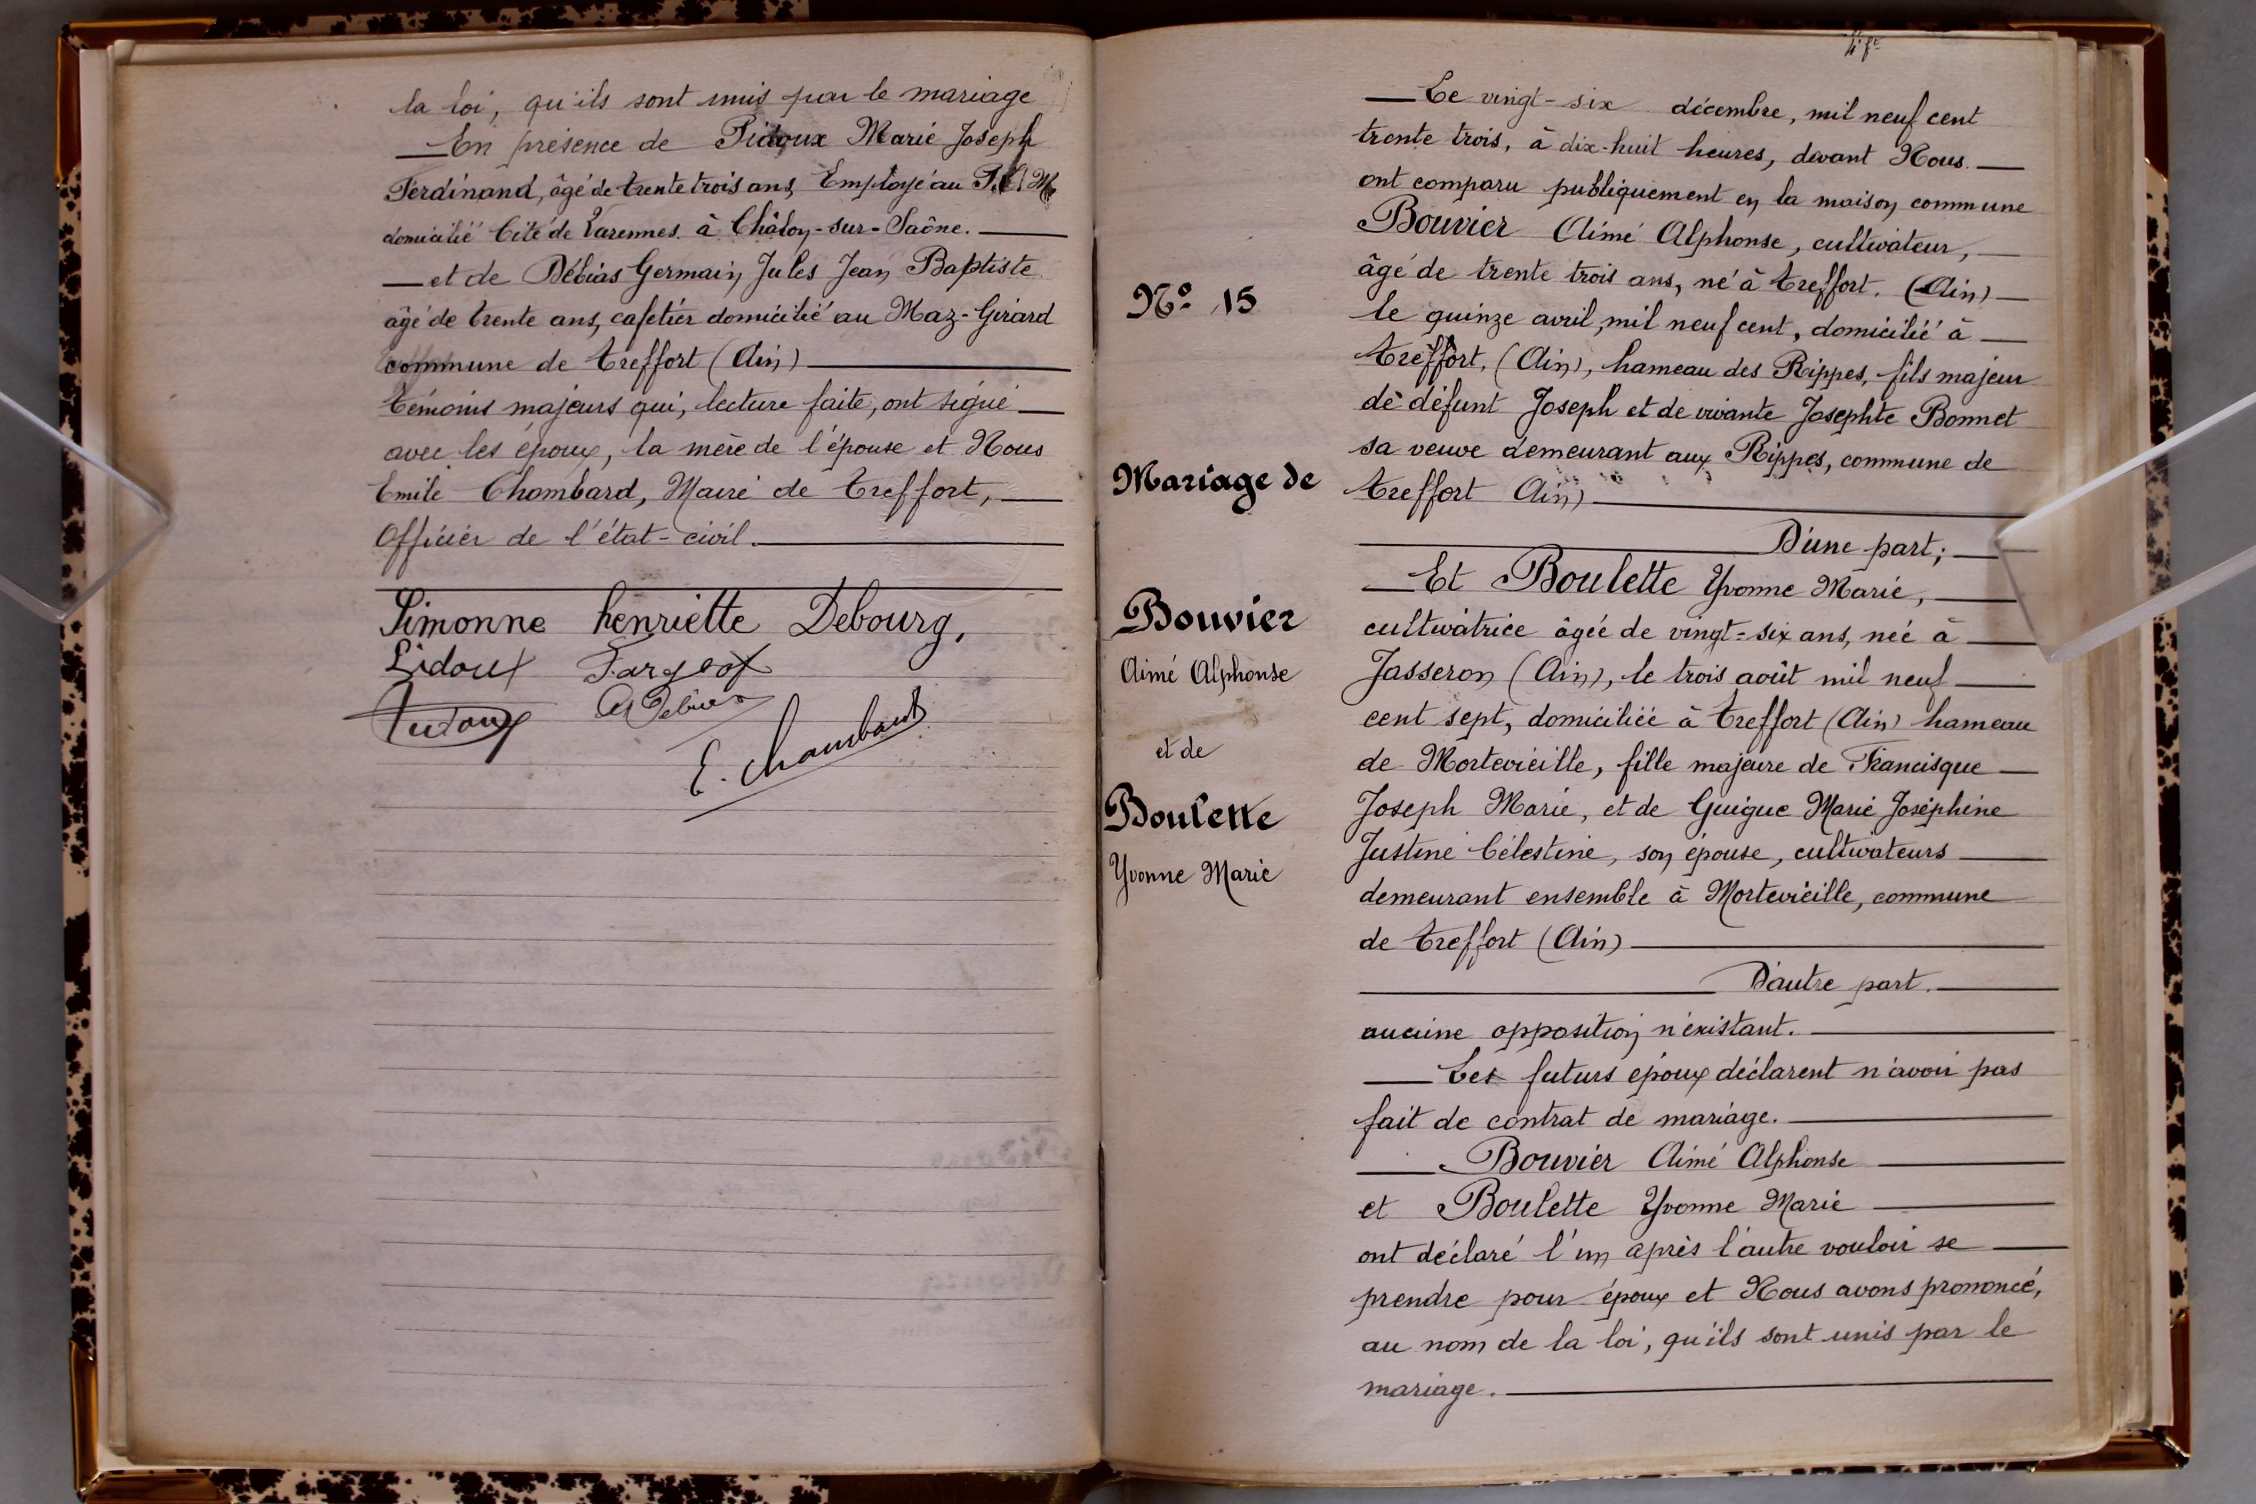 la loi, qu'ils sont unis par le mariage
En présence de Pidoux Marie Joseph
Ferdinand, âgé de trente trois ans, Employé au P.L.M.
domicilié Cité de Varennes à Châlon-sur-Saône.
et de Débias Germain Jules Jean Baptiste
âgé de trente ans, cafetier domicilié au Maz-Girard
commune de Treffort (Ain)
témoins majeurs qui, lecture faite, ont signé
avec les époux, la mère de l'épouse et Nous
Emile Chambard, Maire de Treffort,
Officier de l'état-civil.
Simonne henriette Debourg.
Pidoux Fargeot
E. Chambard
Le vingt-six décembre, mil neuf cent
trente trois, à dix-huit heures, devant Nous.
ont comparu publiquement en la maison commune
Bouvier Aimé Alphonse, cultivateur,
âgé de trente trois ans, né à Treffort. (Ain)
N° 15
le quinze avril, mil neuf cent, domicilié à
Treffort, (Ain), hameau des Rippes, fils majeur
de défunt Joseph et de vivante Josephte Bonnet
sa veuve demeurant aux Rippes, commune de
Mariage de
Treffort Ain)
D'une part;
Et Boulette Yvonne Marie,
Bouvier
Aimé Alphonse
et de
Boulette
Yvonne Marie
cultivatrice âgée de vingt-six ans, née à
Jasseron (Ain), le trois août mil neuf
cent sept, domiciliée à Treffort (Ain) hameau
de Mortevieille, fille majeure de Francisque
Joseph Marie, et de Guigue Marie Joséphine
Justine Célestine, son épouse, cultivateurs
demeurant ensemble à Mortevieille, commune
de Treffort (Ain)
D'autre part.
aucune opposition n'existant.
Les futurs époux déclarent n'avoir pas
fait de contrat de mariage.
Bouvier Aimé Alphonse
et Boulette Yvonne Marie
ont déclaré l'un après l'autre vouloir se
prendre pour époux et Nous avons prononcé,
au nom de la loi, qu'ils sont unis par le
mariage.